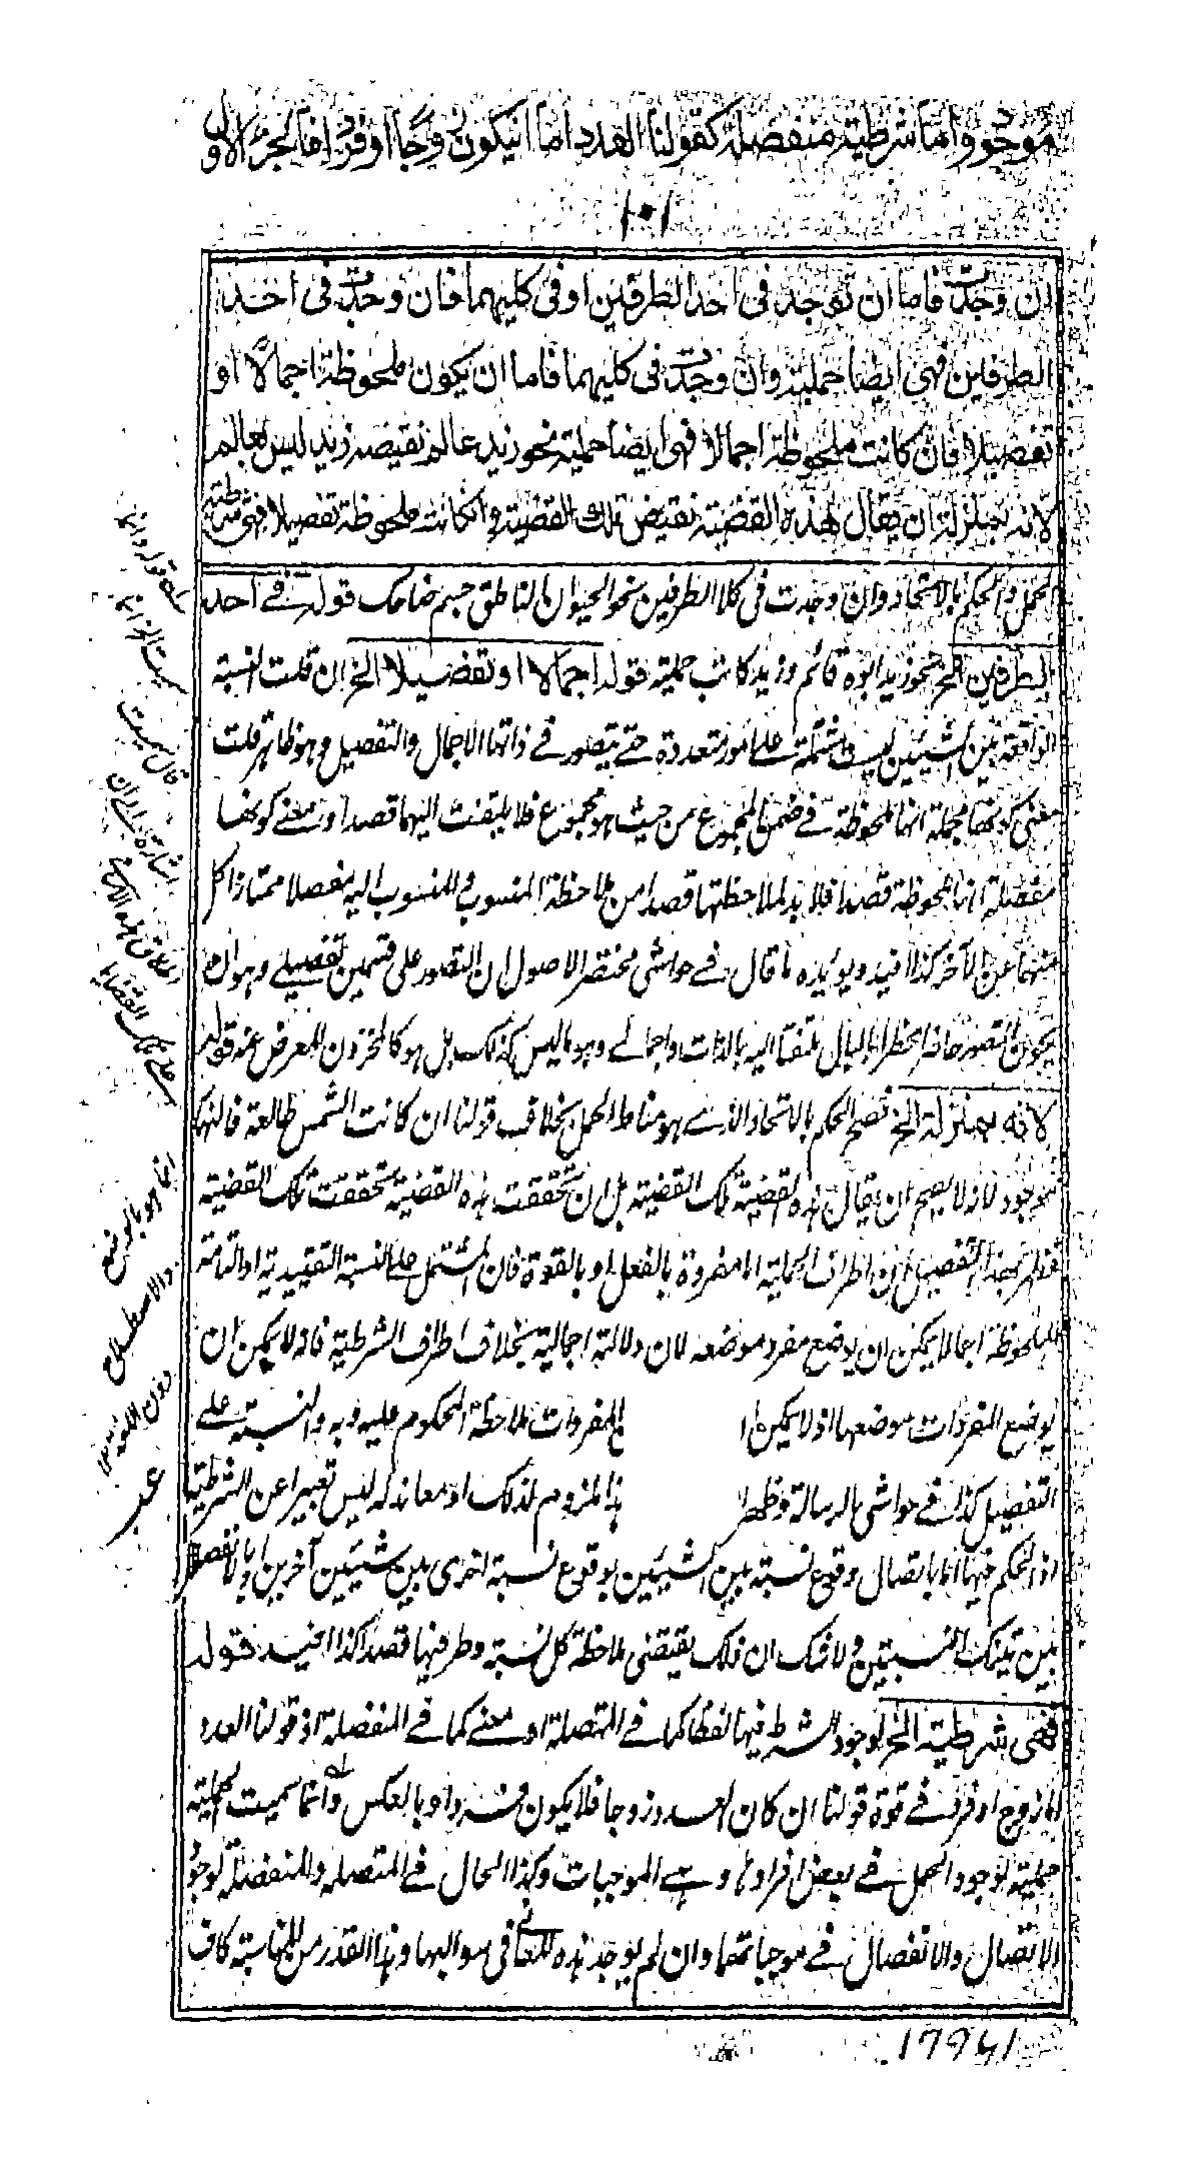 موجود واما شرطية منفصلة كقولنا العدد اما انيكون زوجا او فردا فالجزء الاول
١٠١
ان وجدت فاما ان توجد فى احد الطرفين او فى كليهما فان وجدت فى احد
الطرفين فهى ايضا حملية وان وجدت فى كليهما فاما ان يكون ملحوظة اجمالا او
تفصيلا فان كانت ملحوظة اجمالا فهى ايضا حملية نحو زيد عالم نقيضه زيد ليس بعالم
لانه بمنزلة ان يقال هذه القضية نقيض تلك القضية وانكانت ملحوظة تفصيلا فهى شرطية
الحمل والحكم بالاتحاد وان وجدت فى كلا الطرفين نحو الحيوان الناطق جسم ضاحك قوله فى احد
الطرفين الخ نحو زيد ابوه قائم وزيد كاتب حملية قوله اجمالا او تفصيلا الخ ان قلت النسبة
الواقعة بين الشيئين ليست مشتملة على امور متعددة حتى يتصور فى ذاتها الاجمال والتفصيل وهو ظاهر قلت
معنى كونها مجملة انها ملحوظة فى ضمن المجموع من حيث هو مجموع فلا يلتفت اليهما قصدا ومعنى كونها
مفصلة انها ملحوظة قصدا فلا بد لملاحظتها قصدا من ملاحظة المنسوب والمنسوب اليه مفصلا ممتازا كل
منهما عن الآخر كذا افيد ويؤيده ما قال فى حواشى مختصر الاصول ان التصور على قسمين تفصيلى وهو ان
يكون المتصور حاضرا مخطرا بالبال ملتفتا اليه بالذات واجمالى وهو ما ليس كذلك بل هو كالمخزون المعرض عنه قوله
لانه بمنزلة الخ فصح الحكم بالاتحاد الذى هو مناط الحمل بخلاف قولنا ان كانت الشمس طالعة فالنهار
موجود لانه لا يصح ان يقال هذه القضية تلك القضية بل ان تحققت هذه القضية تحققت تلك القضية
فظهر بهذا التفصيل ان اطراف الحملية اما مفردة بالفعل او بالقوة فان المشتمل على النسبة التقييدية او التامة
الملحوظة اجمالا يمكن ان يوضع مفرد موضعه لان دلالته اجمالية بخلاف اطراف الشرطية فانه لا يمكن ان
يوضع المفردات موضعها اذ لا يمكن المفردات ملاحظة المحكوم عليه وبه والنسبة على
التفصيل كذا فى حواشى الرسالة وظهر هذا ملزوم لذلك او معاند له ليس تعبيرا عن الشرطية
اذ الحكم فيها انما باتصال وقوع نسبة بين الشيئين بوقوع نسبة اخرى بين شيئين آخرين او بالانفصال
بين تينك النسبتين ولا شك ان ذلك يقتضى ملاحظة كل نسبة وطرفيها قصدا كذا افيد قوله
فهى شرطية الخ لوجود الشرط فيها لفظا كما فى المتصلة او معنى كما فى المنفصلة اذ قولنا العدد
اما زوج او فرد فى قوة قولنا ان كان العدد زوجا فلا يكون فردا وبالعكس وانما سميت الحملية
حملية لوجود الحمل فى بعض افرادها وهى الموجبات وكذا الحال فى المتصلة والمنفصلة لوجود
الاتصال والانفصال فى موجباتهما وان لم يوجد هذه المعانى فى سوالبها وهذا القدر من المناسبة كاف
قوله وانما
سميت الخ انما
قال سميت
اشارة الى ان
اطلاق هذه الاسامى
على تلك القضايا
انما هو بالوضع
والاصطلاح
دون اللغة